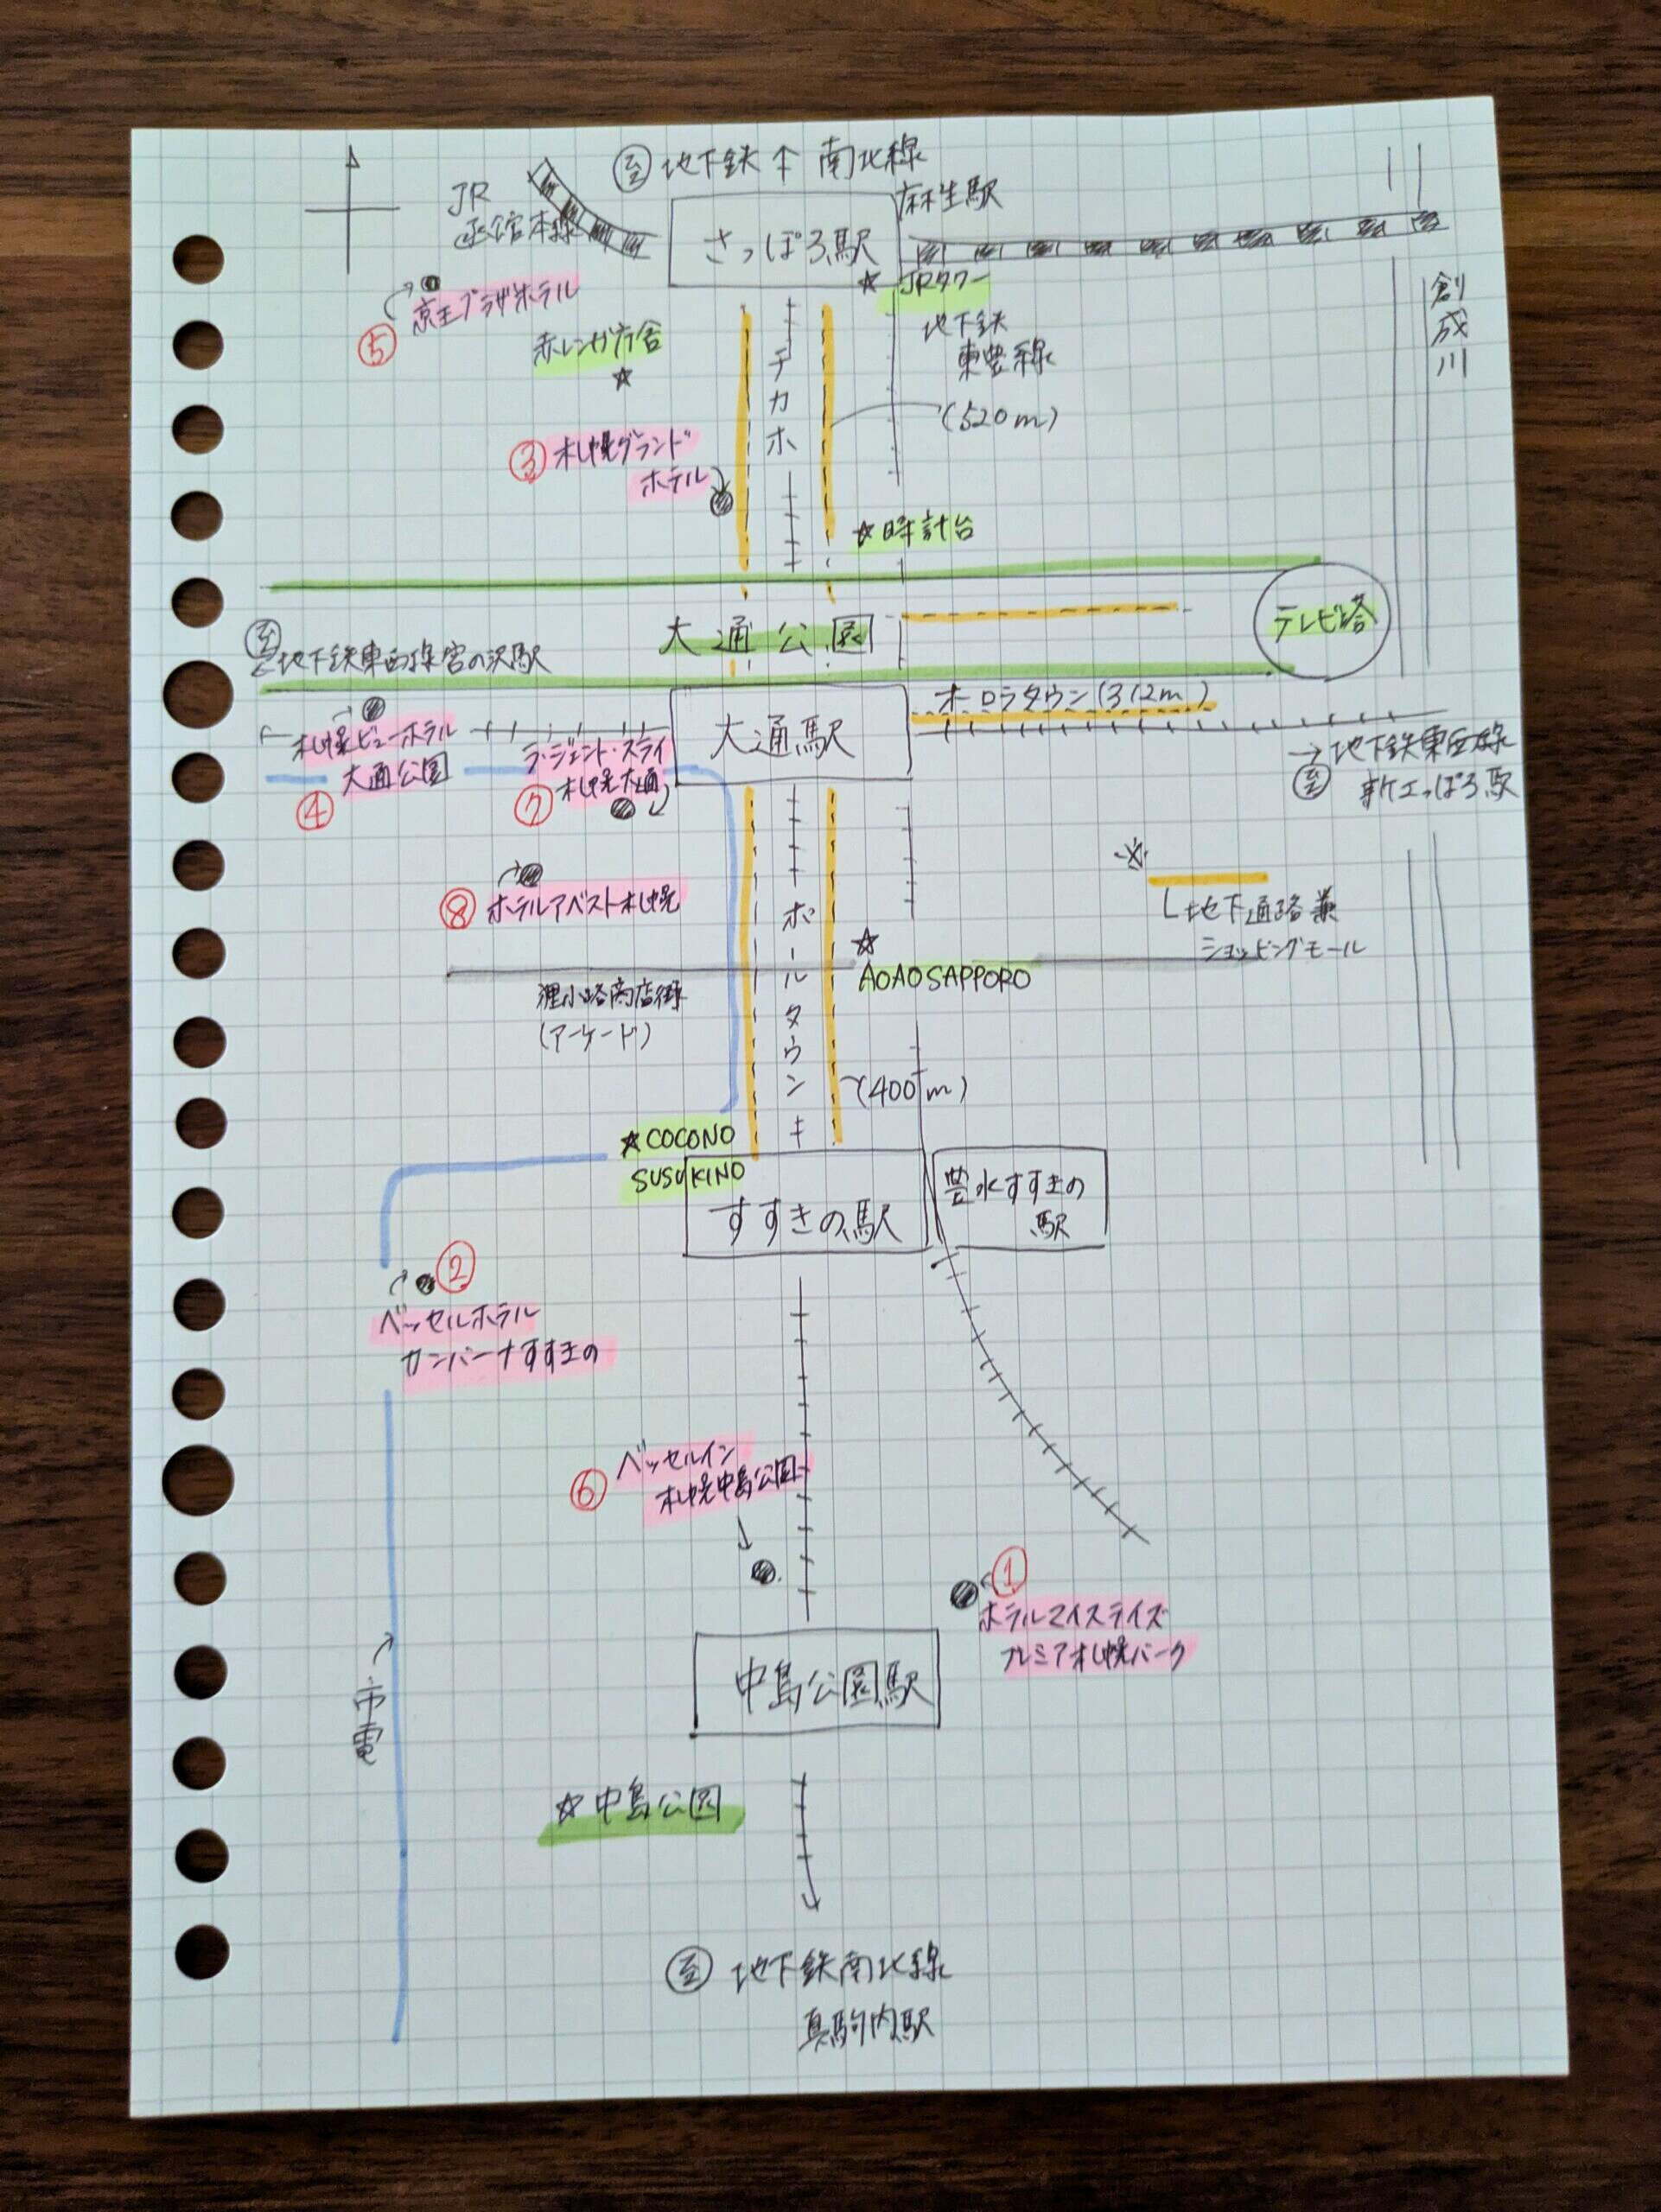 至 地下鉄↑南北線
麻生駅
JR
函館本線
さっぽろ駅
☆ JRタワー
創成川
⑤ 京王プラザホテル
赤レンガ庁舎
☆
地下鉄
東豊線
チカホ
(520m)
③ 札幌グランド
ホテル
☆時計台
大通公園
テレビ塔
至 地下鉄東西線宮の沢駅
オーロラタウン(312m)
大通駅
札幌ビューホテル
大通公園
④
ラ・ジェント・ステイ
札幌大通
⑦
→地下鉄東西線
至 新さっぽろ駅
⑧ ホテルアベスト札幌
※
地下通路兼
ショッピングモール
ポールタウン
☆
AOAO SAPPORO
狸小路商店街
(アーケード)
(400m)
☆COCONO
SUSUKINO
すすきの駅
豊水すすきの
駅
②
ベッセルホテル
カンパーナすすきの
⑥ ベッセルイン
札幌中島公園
①
ホテルマイステイズ
プレミア札幌パーク
中島公園駅
市電
☆中島公園
至 地下鉄南北線
真駒内駅